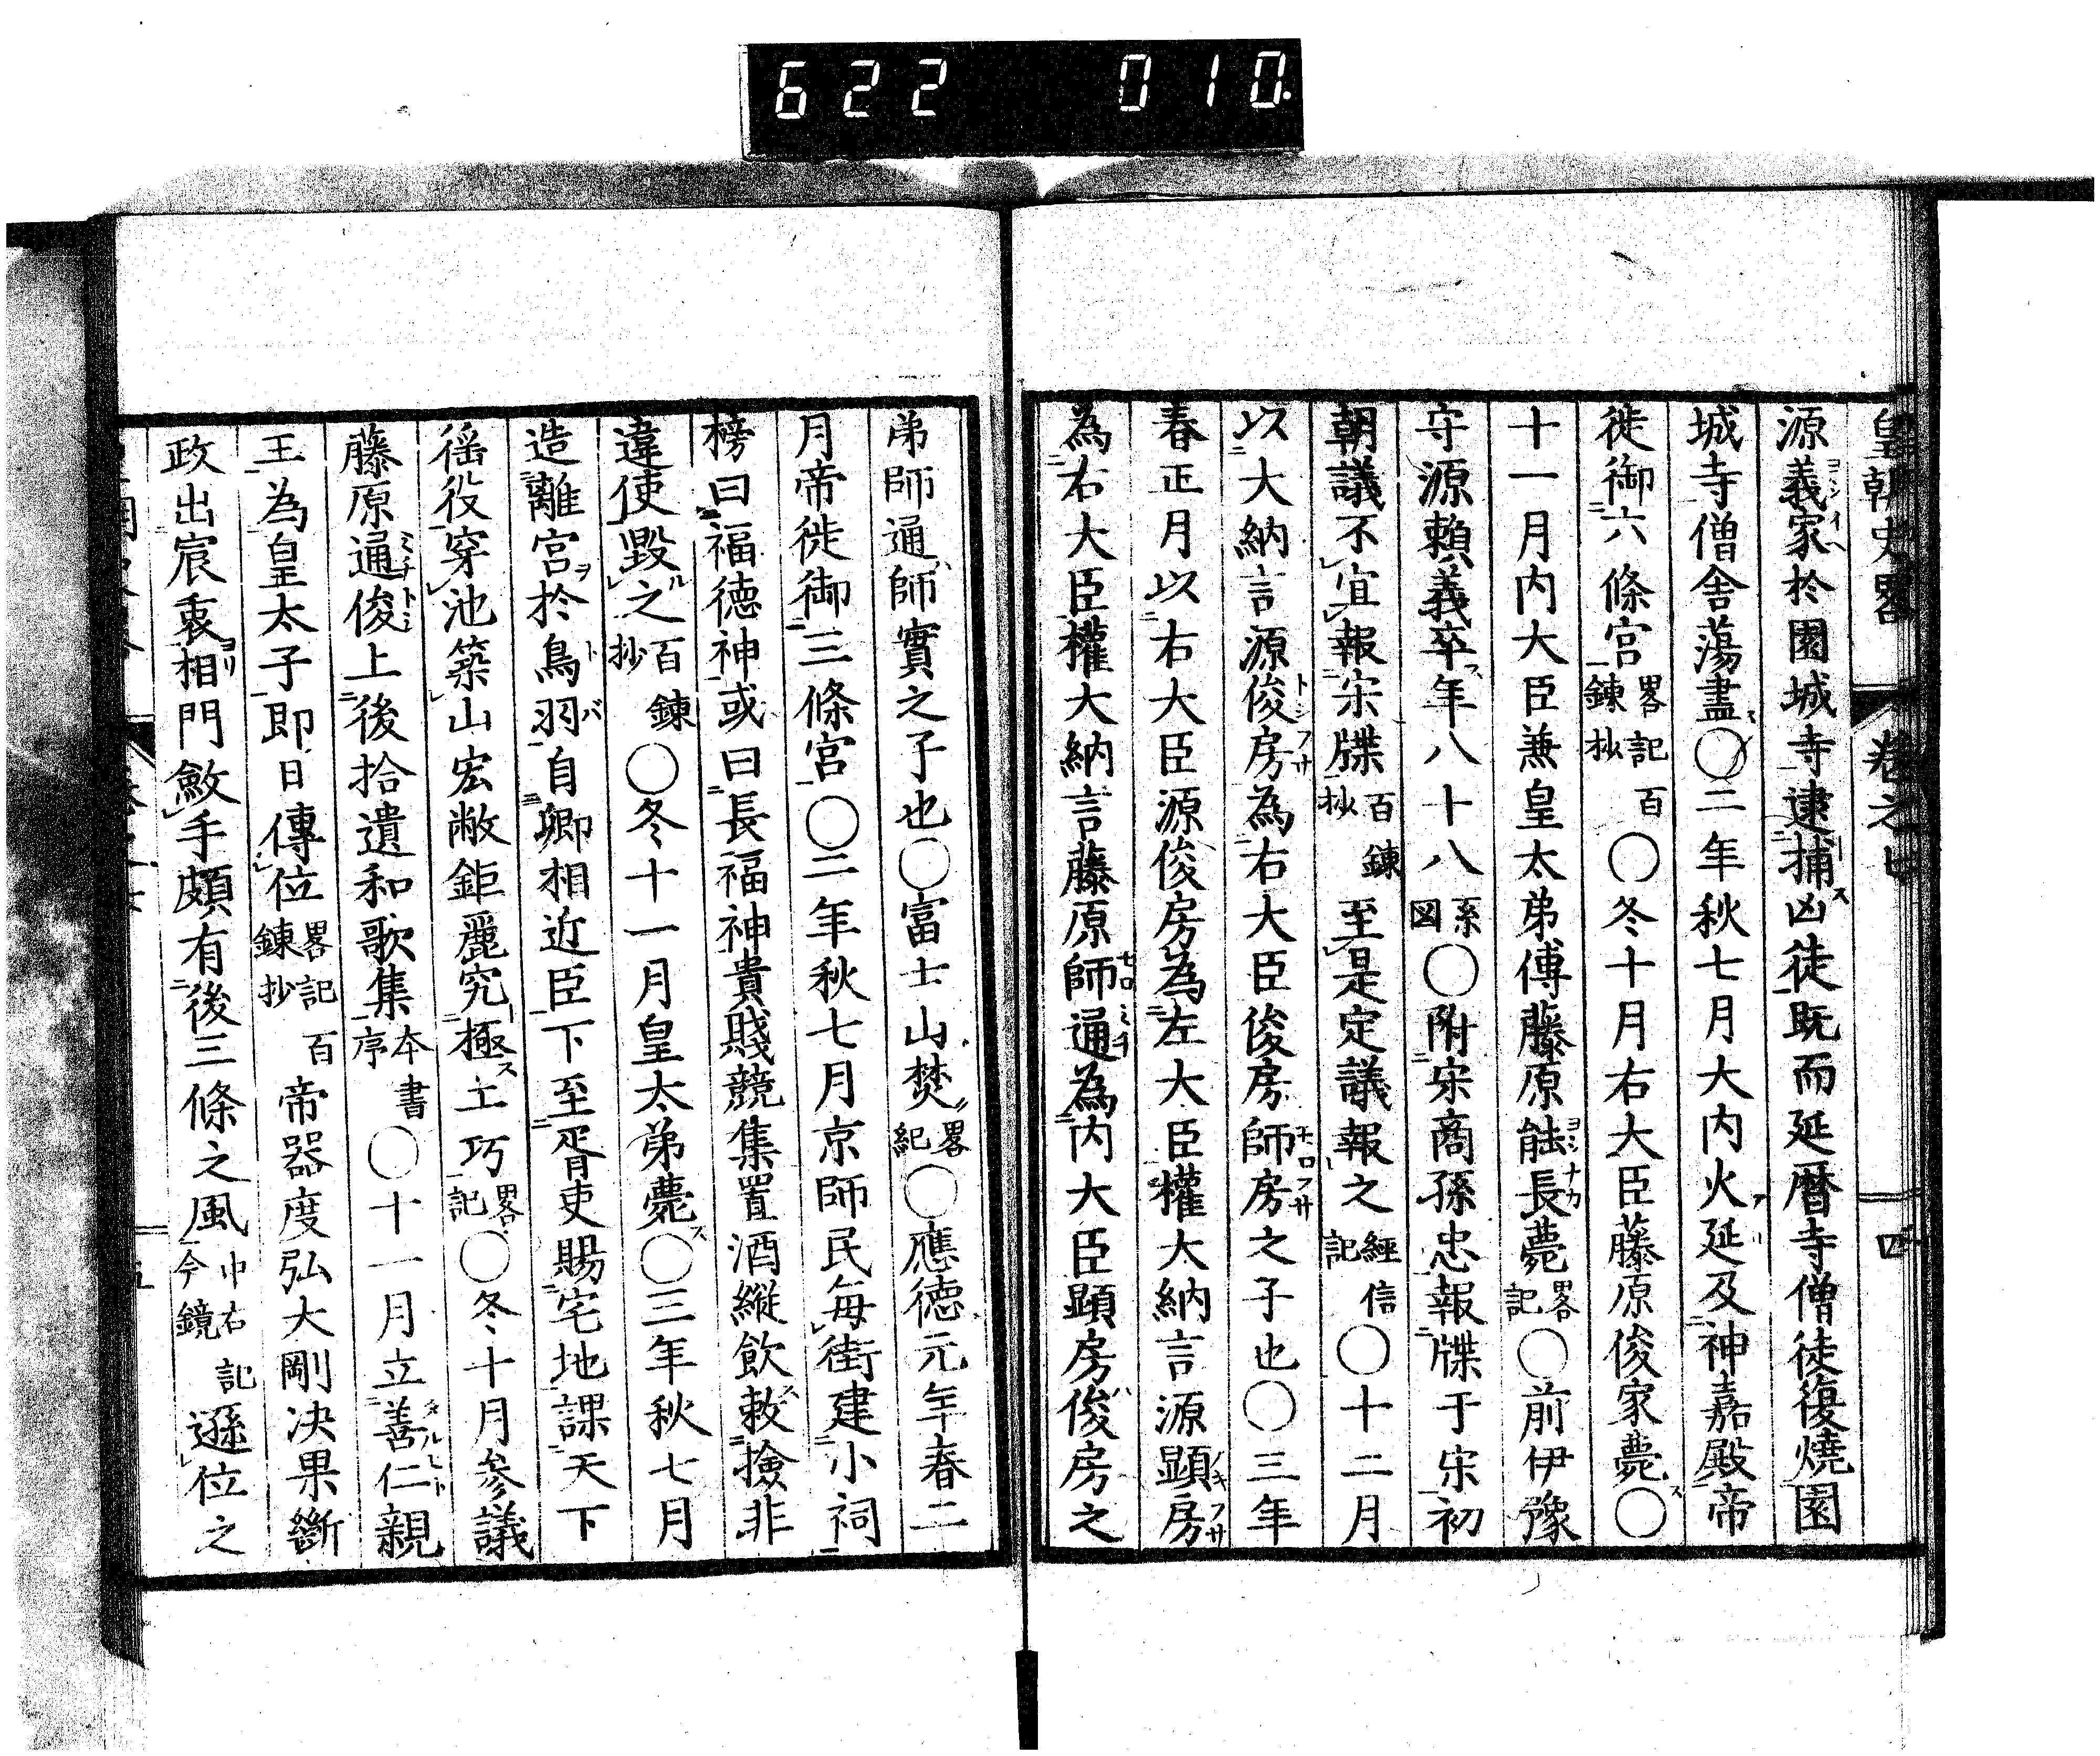 622 010.
皇朝史畧 卷之七 四
源義家於園城寺逮捕凶徒既而延暦寺僧徒復燒園
城寺僧舎蕩盡〇二年秋七月大内火延及神嘉殿帝
徙御六條宮畧記百錬抄〇冬十月右大臣藤原俊家薨〇
十一月内大臣兼皇太弟傅藤原能長薨畧記〇前伊豫
守源頼義卒年八十八系図〇附宋商孫忠報牒于宋初
朝議不宜報宋牒百錬抄至是定議報之經信記〇十二月
以大納言源俊房為右大臣俊房師房之子也〇三年
春正月以右大臣源俊房為左大臣權大納言源顕房
為右大臣權大納言藤原師通為内大臣顕房俊房之
弟師通師實之子也〇富士山焚畧紀〇應徳元年春二
月帝徙御三條宮〇二年秋七月京師民毎街建小祠
榜曰福徳神或曰長福神貴賤競集置酒縦飲敕撿非
違使毀之百錬抄〇冬十一月皇太弟薨〇三年秋七月
造離宮於鳥羽自卿相近臣下至胥吏賜宅地課天下
徭役穿池築山宏敞鉅麗究極土巧畧記〇冬十月参議
藤原通俊上後拾遺和歌集本書序〇十一月立善仁親
王為皇太子即日傳位畧記百錬抄帝器度弘大剛决果斷
政出宸衷相門斂手頗有後三條之風中右記今鏡遜位之